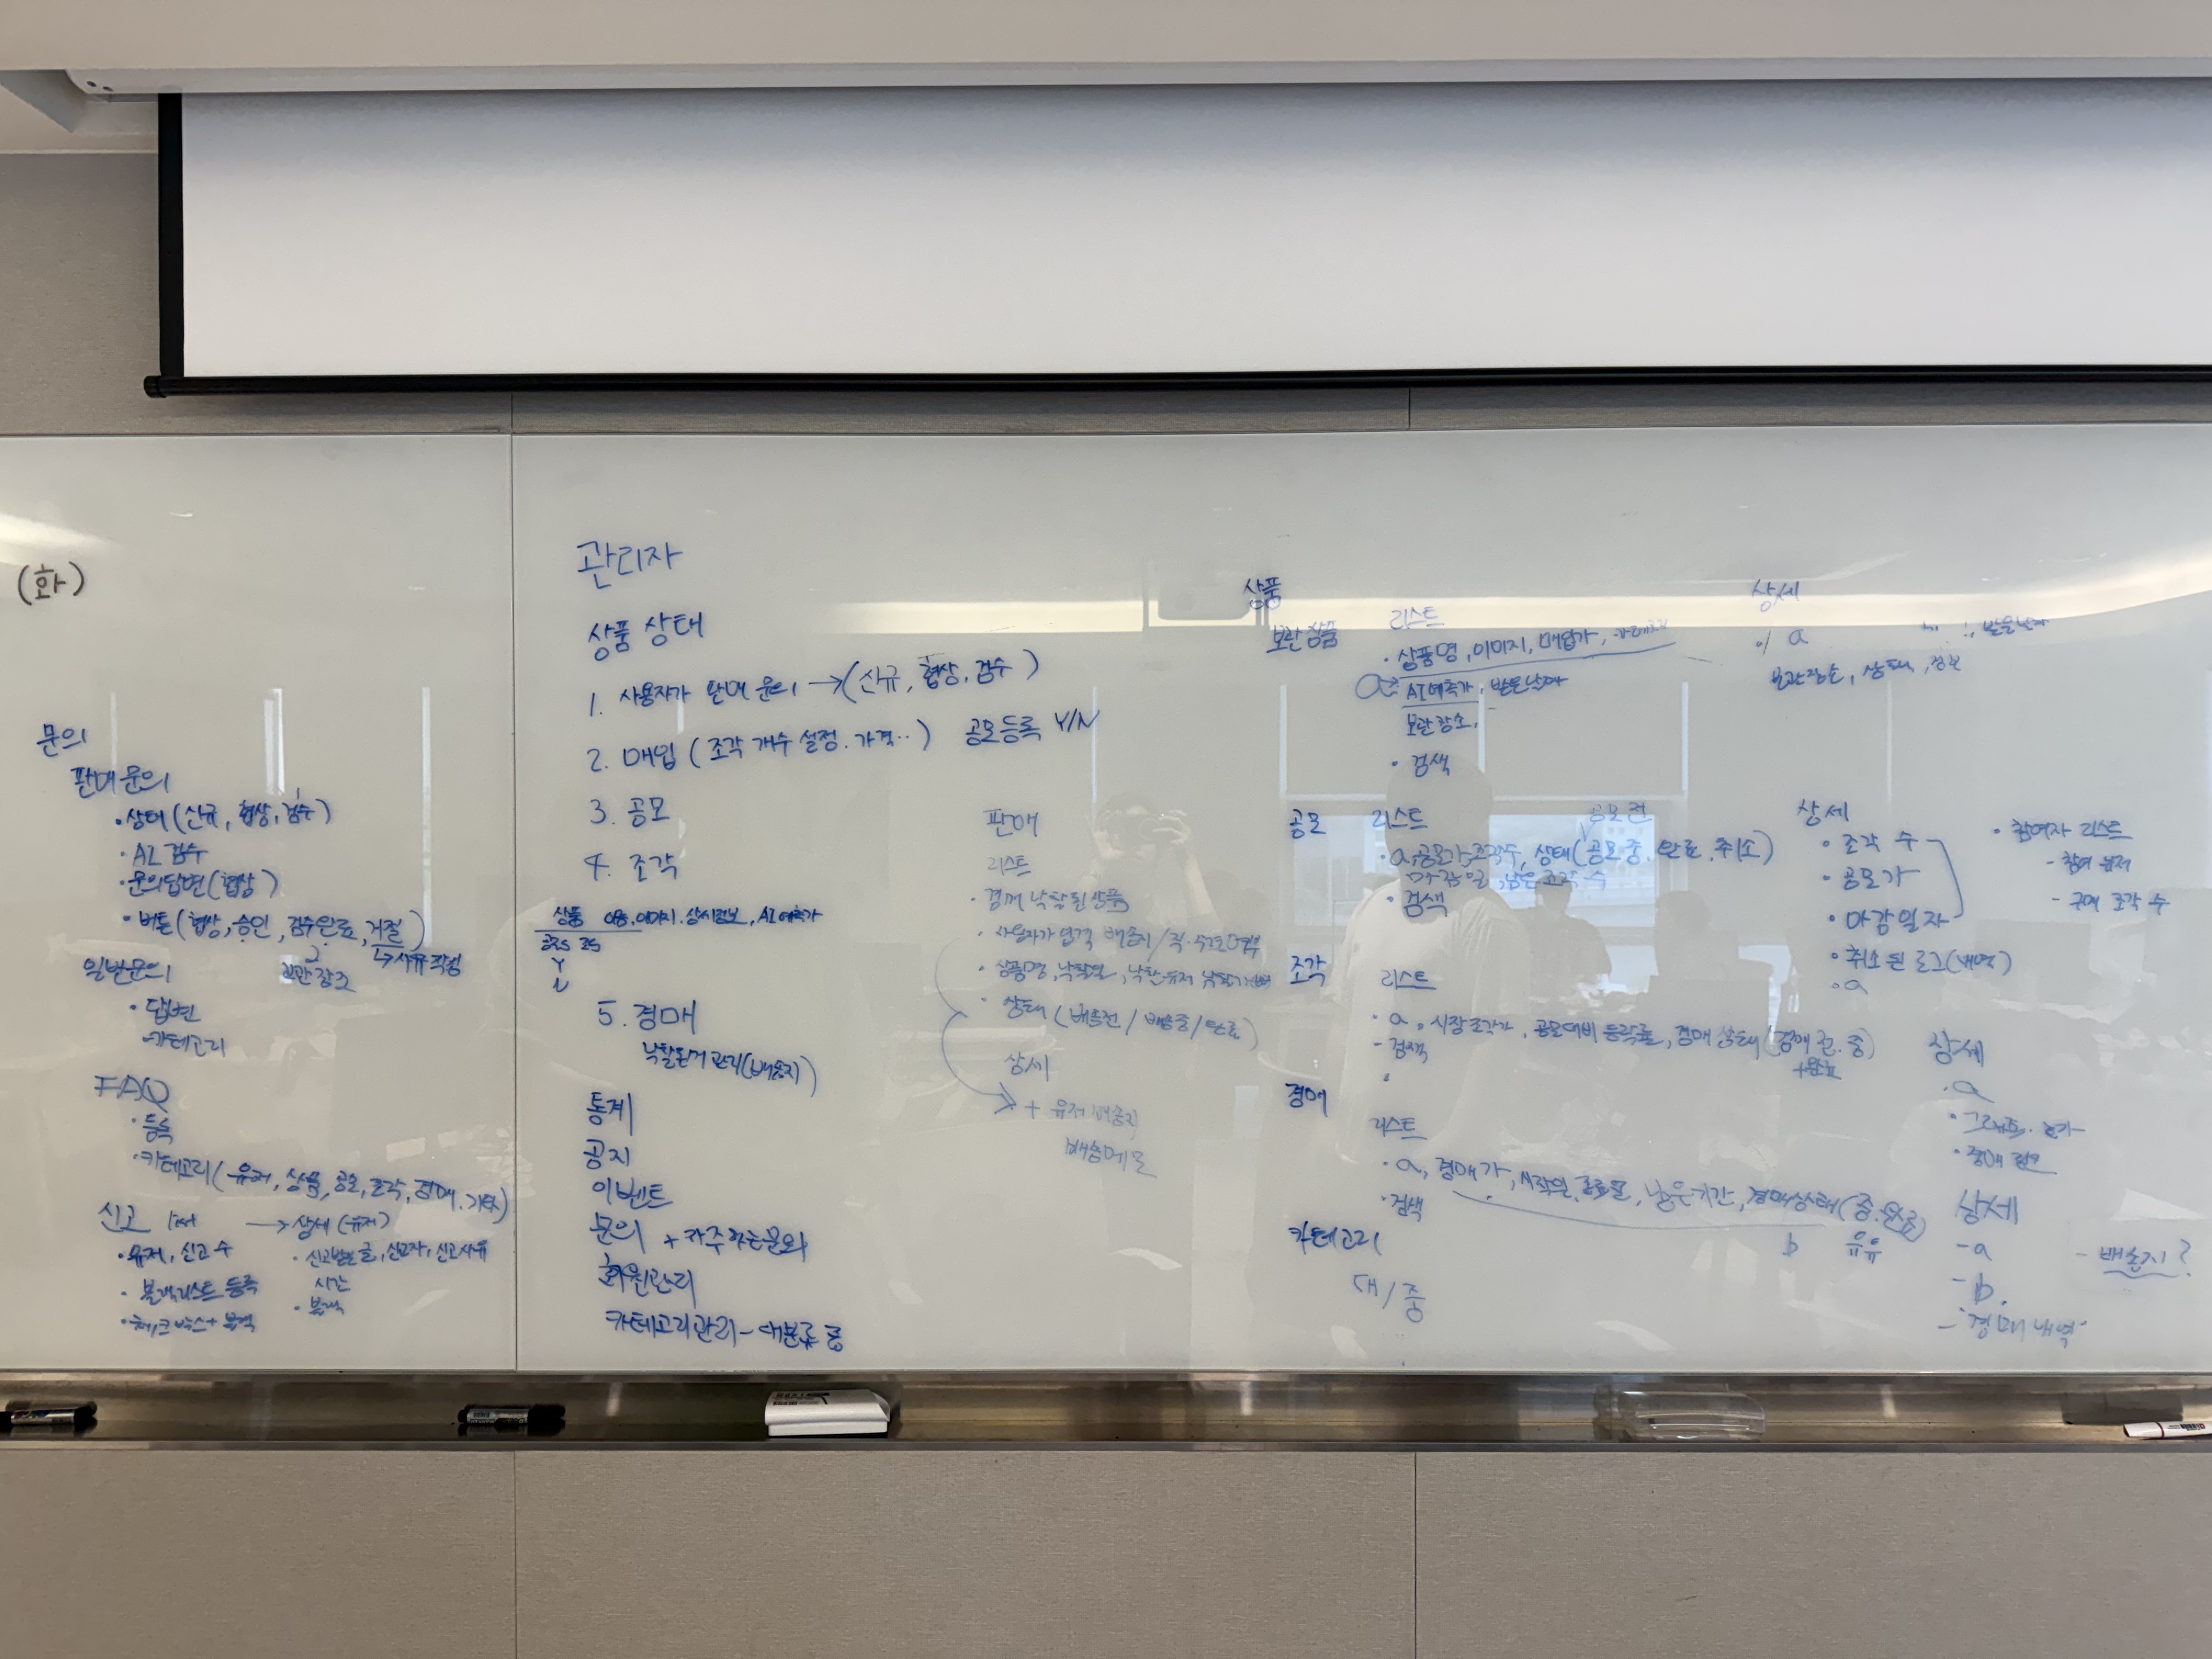 (화)
문의
판매문의
·상태(신규, 협상, 검수)
·AI 검수
·문의답변(협상)
·버튼(협상, 승인, 검수완료, 거절)
↳사유작성
보관장소
일반문의
·답변
-카테고리
FAQ
·등록
·카테고리(유저, 상품, 공모, 조각, 경매, 기타)
신고
→상세(유저)
·유저, 신고 수
·신고받은 글, 신고자, 신고사유
시간
·블랙리스트 등록
·블랙
·체크박스+블랙
관리자
상품 상태
1. 사용자가 판매 문의 →(신규, 협상, 검수)
2. 매입 (조각 개수 설정. 가격..) 공모등록 Y/N
3. 공모
4. 조각
상품 이미지. 상세정보, AI예측가
Y
N
5. 경매
낙찰된거 관리(배송지)
통계
공지
이벤트
문의 + 자주하는문의
회원관리
카테고리관리- 대분류 중
판매
리스트
·경매 낙찰된 상품
·사용자가 입력 배송지/
·상품명, 낙찰일, 낙찰 유저
·상태 (배송전/배송중/완료)
상세
+ 유저 배송지
배송메모
상품
보관상품
리스트
·상품명, 이미지, 매입가,
a: AI예측가, 받은날짜
보관장소,
·검색
상세
a
받은날짜
보관장소, 상태,
공모
리스트
공모전
·a, 공모가, 조각수, 상태(공모중, 완료, 취소)
마감일, 남은조각수
·검색
상세
·조각 수
·공모가
·마감일자
·취소된 로그(내역)
·a
·참여자 리스트
-참여 유저
-구매 조각 수
조각
리스트
·a, 시장조각가, 공모대비 등락률, 경매 상태(경매 전. 중)
+완료
-검색
상세
·a
경매
리스트
·a, 경매가, 시작일, 종료일, 남은기간, 경매상태(중.완료)
·검색
b
상세
-a
-b.
-경매내역
-배송지?
카테고리
대/중